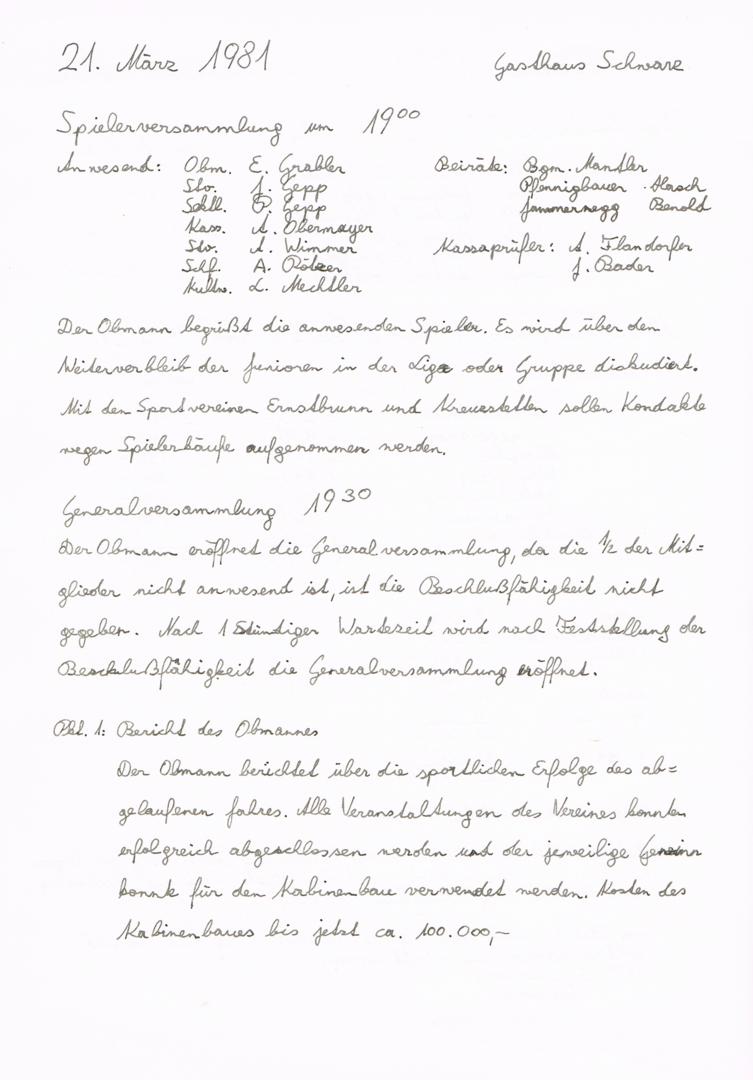 21. März 1981 Gasthaus Schwarz
Spielerversammlung um 19⁰⁰
Anwesend: Obm. E. Grabler Beiräte: Bgm. Mantler
Stv. J. Gepp Pfennigbauer Hasch
Schfl. P. Gepp Jammernegg Benold
Kass. A. Obermayer
Stv. A. Wimmer Kassaprüfer: A. Flandorfer
Schf. A. Rötzer J. Bader
Kultw. L. Mechtler
Der Obmann begrüßt die anwesenden Spieler. Es wird über den
Weiterverbleib der Junioren in der Liga oder Gruppe diskudiert.
Mit den Sportvereinen Ernstbrunn und Kreuzstetten sollen Kondakte
wegen Spielerkäufe aufgenommen werden.
Generalversammlung 19³⁰
Der Obmann eröffnet die Generalversammlung, da die 1/2 der Mit=
glieder nicht anwesend ist, ist die Beschlußfähigkeit nicht
gegeben. Nach 1 Stündiger Wartezeit wird nach Feststellung der
Beschlußfähigkeit die Generalversammlung eröffnet.
Pkt. 1: Bericht des Obmannes
Der Obmann berichtet über die sportlichen Erfolge des ab=
gelaufenen Jahres. Alle Veranstaltungen des Vereines konnten
erfolgreich abgeschlossen werden und der jeweilige Gewinn
konnte für den Kabinenbau verwendet werden. Kosten des
Kabinenbaues bis jetzt ca. 100.000,-